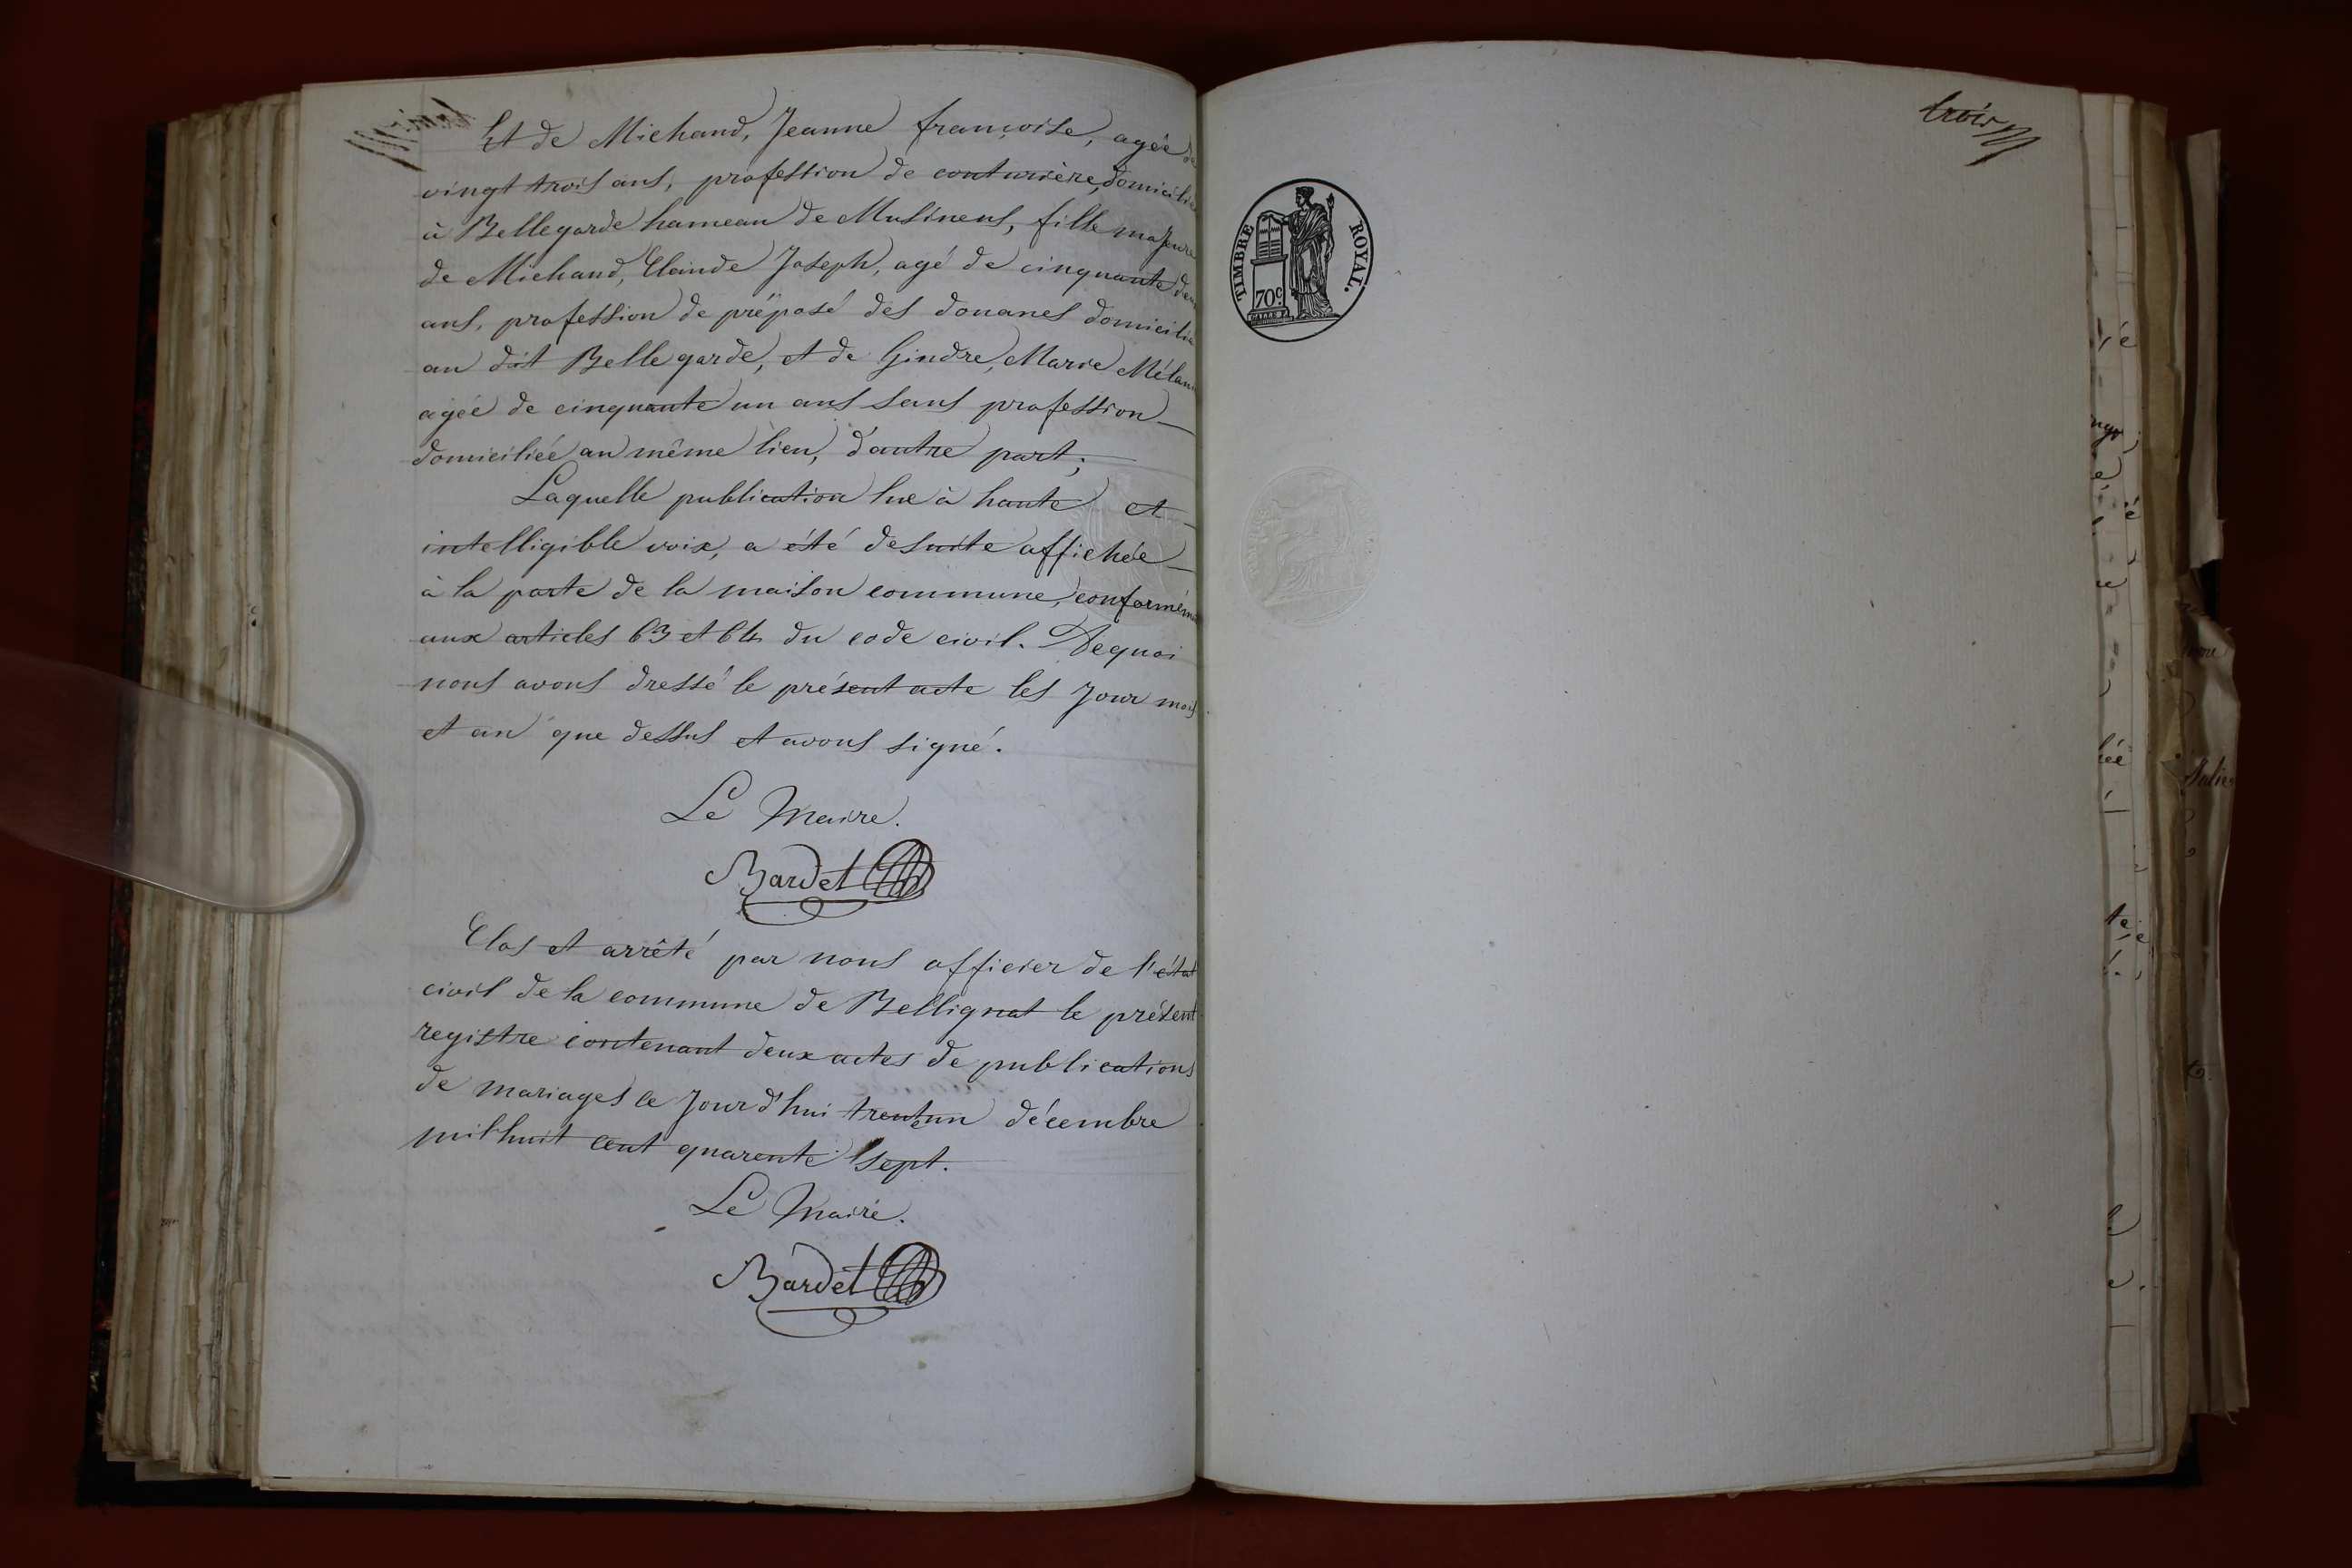 Et de Michaud, Jeanne françoise, agée de
vingt trois ans, profession de couturière, domicilié
à Bellegarde hameau de Musinens, fille majeure
de Michaud, Claude Joseph, agé de cinquante deux
ans, profession de préposé des douanes domicilié
au dit Bellegarde, et de Gindre, Marie Mélanie
agée de cinquante un ans sans profession
domiciliée au même lieu, d'autre part;
Laquelle publication lue à haute et
intelligible voix, a été desuite affichée
à la porte de la maison commune, conformément
aux articles 63 et 64 du code civil. Dequoi
nous avons dressé le présent acte les Jour mois
et an que dessus et avons signé.
Le Maire.
Bardet
Clos et arrêté par nous officier de l'état
civil de la commune de Bellignat le présent
registre contenant deux actes de publications
de mariages ce Jour d'hui trente un décembre
mil huit cent quarente sept.
Le Maire.
Bardet
trois
TIMBRE ROYAL.
70c.